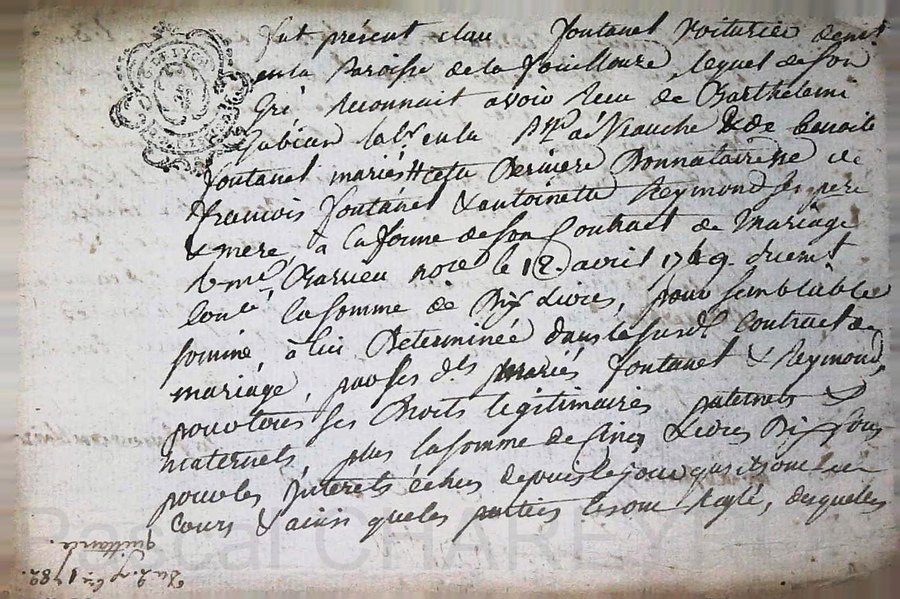 fut présent clau fontanel voiturier demt
en la paroisse de la fouillouze, lequel de son
gré reconnait avoir recu de Barthelemi
Gabian labr. en la psse de & de benoite
fontanel mariés cette Derniere Donnatairesse de
francois fontanel & antoinette Reymond ses pere
& mere, a la forme de son Contract de mariage
Charvieu nore. le 12. avril 1749. duemt
conlé, la somme de Dix Livres, pour semblable
somme, à lui Determinée dans le susd. Contract de
mariage, par ses ds. mariés fontanel & Reymond,
pour tous ses Droits legitimaires paternels &
maternels, plus la somme de Cinq Livres Dix sous
pour les Interets échus depuis le jour quils ont eu
Cours & ainsi que les parties les ont Reglé, desquelles
Pascal CHAREYRE
quittance.
1782.